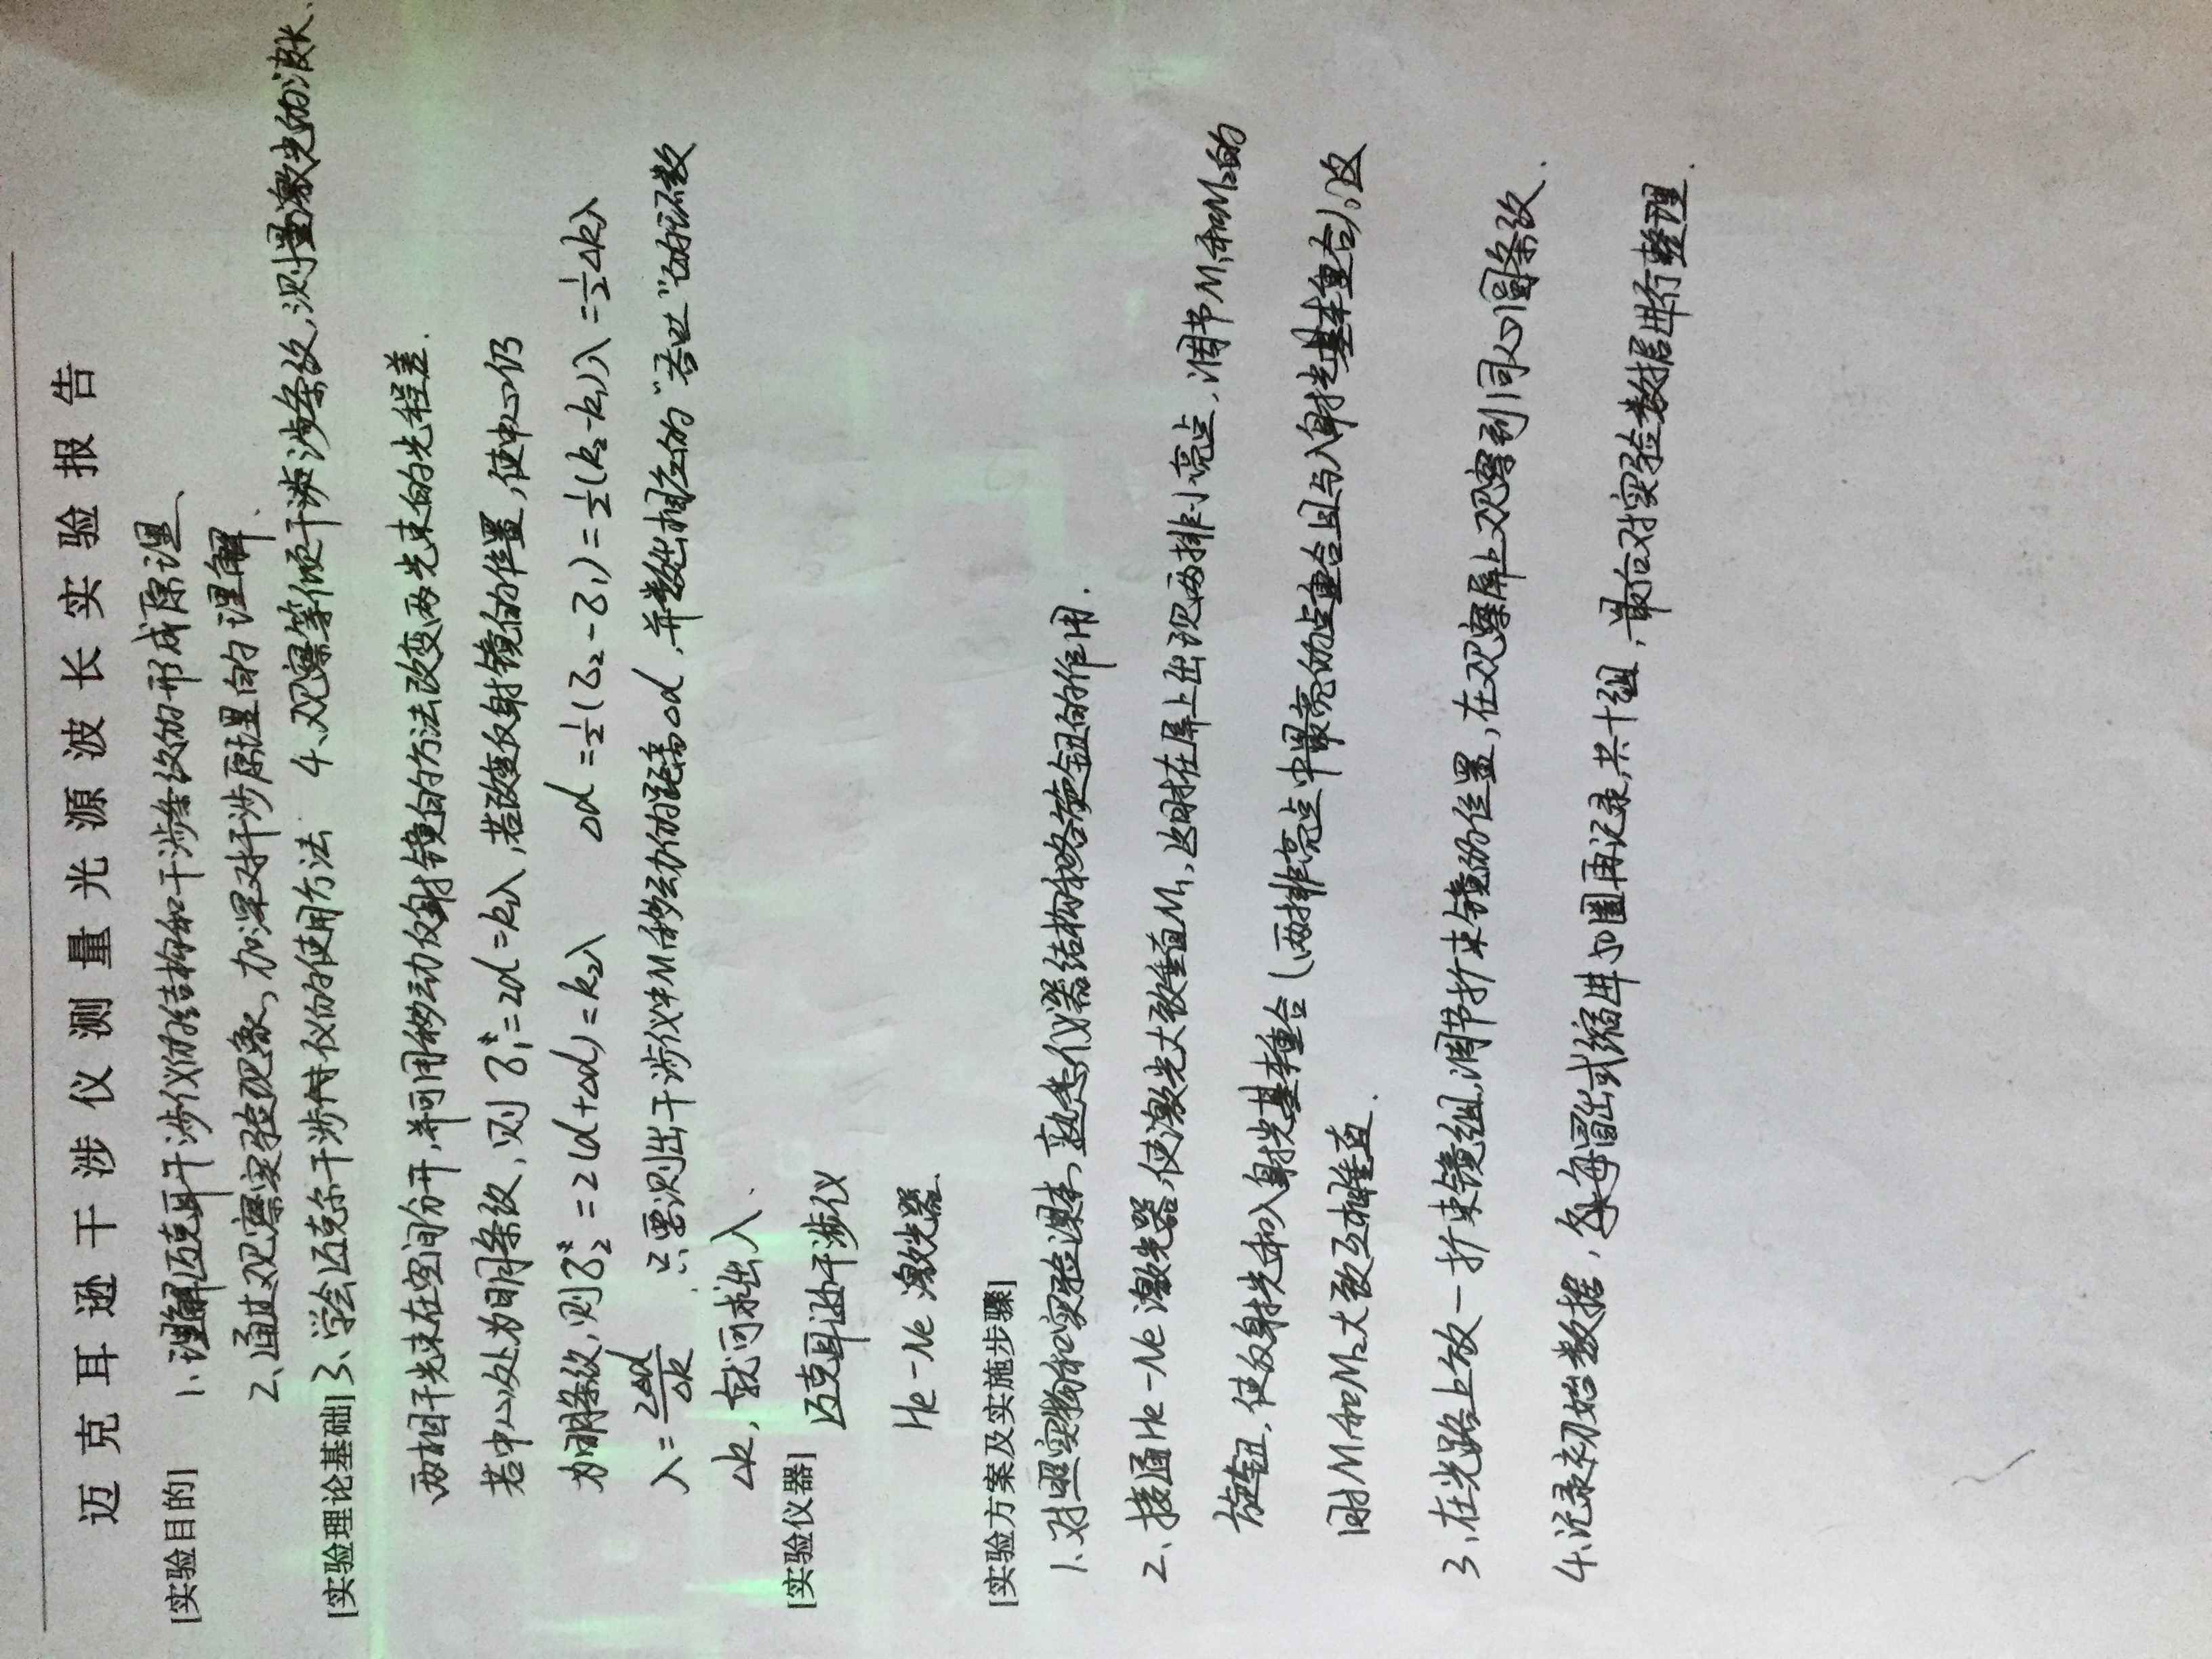 迈克耳逊干涉仪测量光源波长实验报告
[实验目的] 1、理解迈克耳干涉仪的结构和干涉条纹的形成原理、
2、通过观察实验现象，加深对干涉原理的理解、
3、学会迈克尔干涉仪的使用方法 4、观察等倾干涉条纹，测量激光的波长、
[实验理论基础]
两相干光束在空间分开，并可用移动反射镜的方法改变两光束的光程差.
若中心处为明条纹，则 δ₁=2d=k₁λ，若改变反射镜的位置，使中心仍
为明条纹，则δ₂=2(d+Δd)=k₂λ Δd=½(δ₂-δ₁)=½(k₂-k₁)λ=½Δkλ
λ=2Δd/Δk，只要测出干涉仪中M₁移动的距离Δd，并数出相应的“吞吐”的环数
Δk，就可求出λ、
[实验仪器] 迈克耳逊干涉仪
He-Ne 激光器.
[实验方案及实施步骤]
1、对照实物和实验课本，熟悉仪器结构和各旋钮的作用.
2、接通He-Ne激光器，使激光大致垂直M₁，这时在屏上出现两排小亮点，调节M₁和M₂的
旋钮，使反射光和入射光基本重合(两排亮点中最亮的点重合且与入射光基本重合)。这
时M₁和M₂大致互相垂直.
3、在光路上放一扩束镜组，调节扩束镜的位置，在观察屏上观察到同心圆条纹.
4、记录初始数据，每冒出或缩进50圈再记录，共十组，最后对实验数据进行整理.